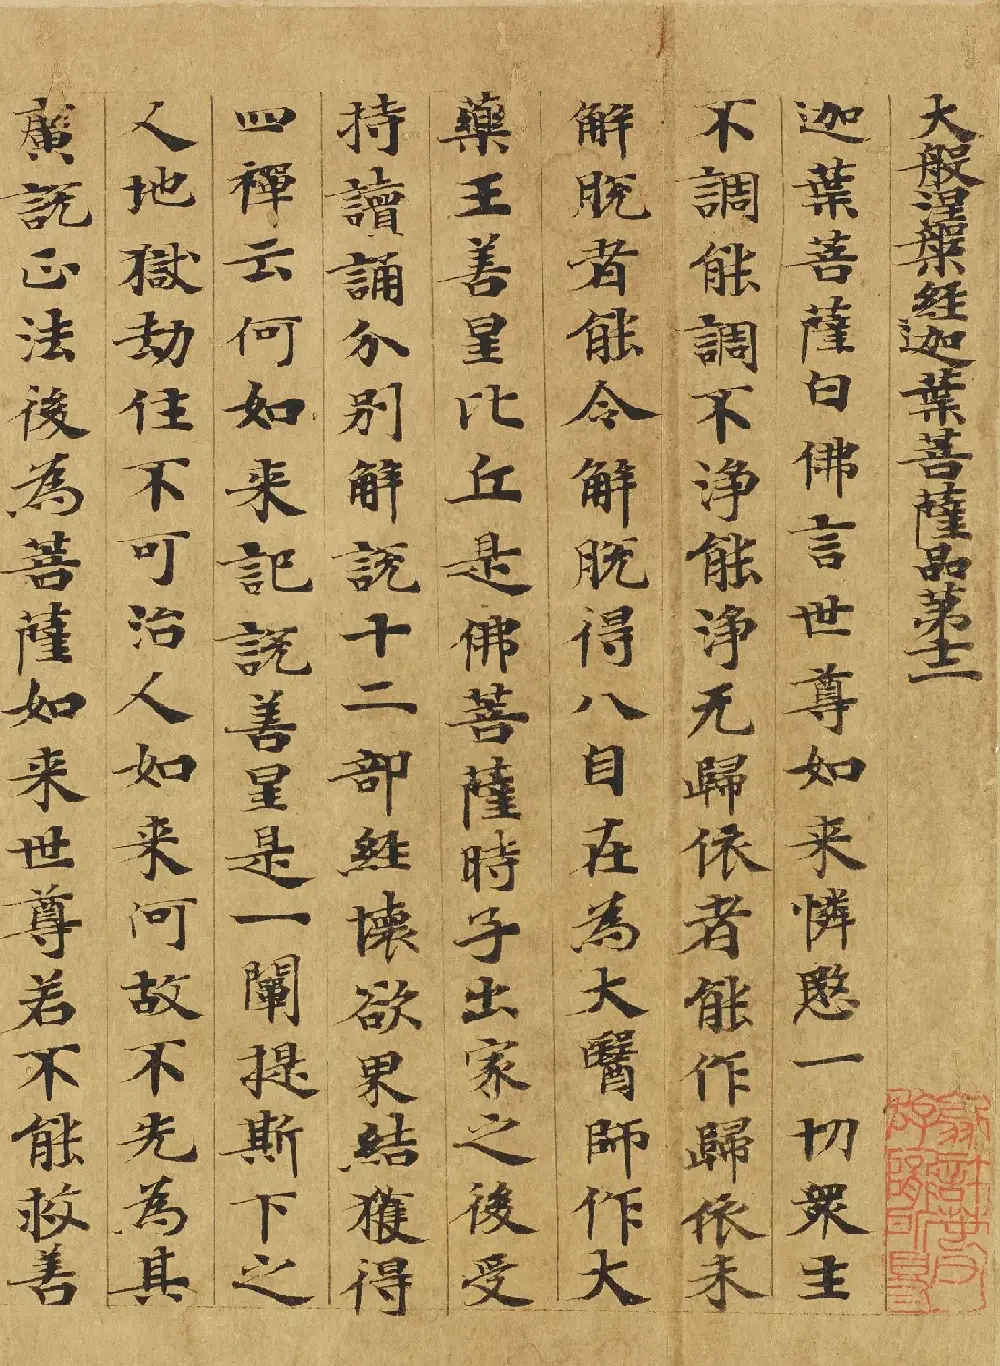 大般涅槃經迦葉菩薩品第十二
迦葉菩薩白佛言世尊如来憐愍一切眾生
不調能調不淨能淨无歸依者能作歸依未
解脱者能令解脱得八自在為大醫師作大
藥王善星比丘是佛菩薩時子出家之後受
持讀誦分別解說十二部經懷欲界結獲得
四禪云何如来記說善星是一闡提斯下之
人地獄劫住不可治人如来何故不先為其
廣說正法後為菩薩如来世尊若不能救善